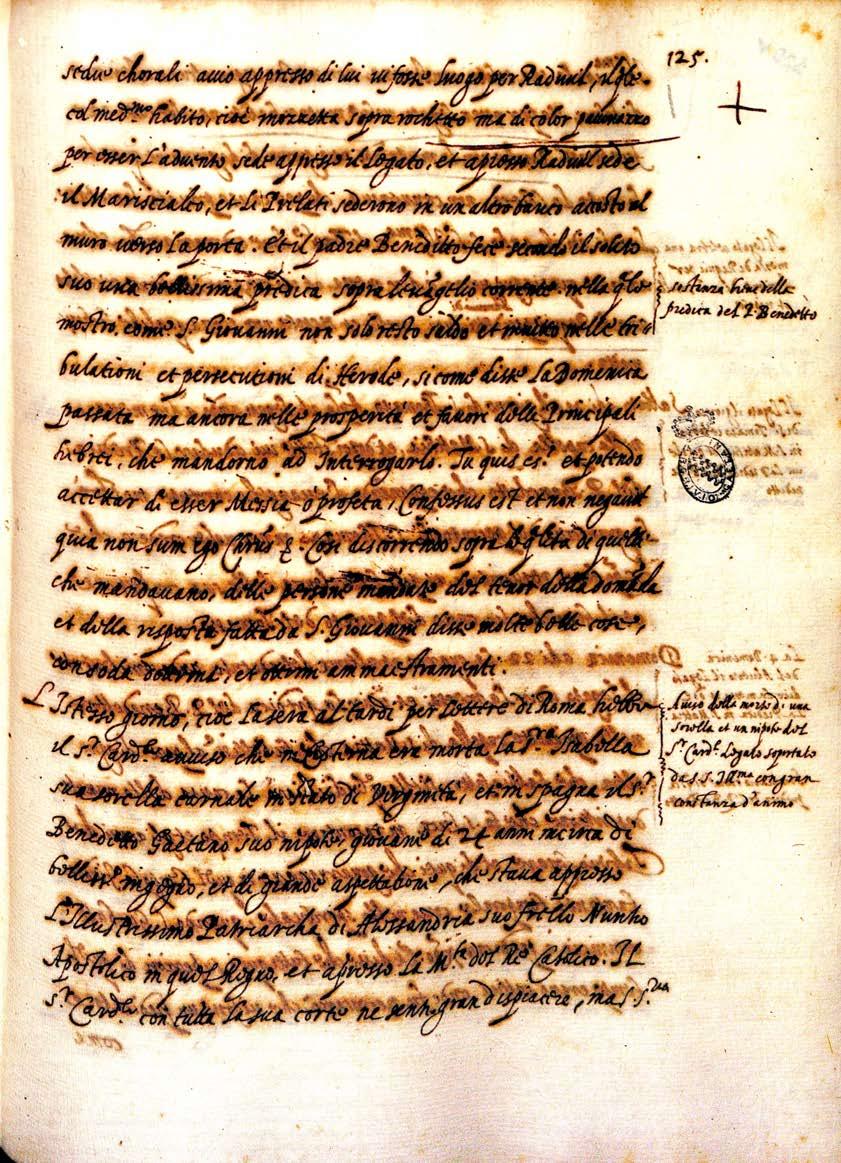 125.
sedie chorali avio appresso di lui vi fosse luogo per Radivil, il q̃le
col med.mo habito, cioè mozzetta sopra rochetto ma di color pavonazzo
per esser l'advento sede appresso il Legato, et apresso Radivil sede
il Marisciallo, et li Prelati sederono in un altro banco accosto al
muro verso la porta. Et il padre Benedetto fece secondo il solito
suo una bellissima predica sopra l'evãgelio corrente nella q̃le
mostrò come S. Giovanni non solo restò saldo et invitto nelle tri-
bulationi et persecutioni di Herode, si come disse la Domenica
passata ma ancora nelle prosperità et favori delle Principali
hebrei, che mandorno ad Interrogarlo. Tu quis es? et potendo
accettar di esser Messia ò profeta, Confessus est et non negavit
quia non sum ego Chrũs &. Così discorrendo sopra la q̃lità di quelli
che mandavano, delle persone mandate del tenor della domãda
et della risposta fatta da S. Giovanni disse molte belle cose,
con soda dottrina, et ottimi ammaestramenti.
L'istesso giorno, cioè la sera al tardi per lettere di Roma hebbe
il S.r Card.le avviso che in Cisterna era morta la S.ra Isabella
sua sorella carnale in stato di Virginità, et in spagna il S.r
Benedetto Gaetano suo nipote giovane di 24 anni incirca di
belliss.o ingegno, et di grande aspettatione, che stava appresso
L'Illustrissimo Patriarcha di Alessandria suo frello Nuntio
Apostolico in quel Regno, et apresso la M.tà del Re Catolico. Il
S.r Card.le con tutta la sua corte ne sentì gran dispiacere, ma S. S.ria
sostanza breve della
predica del P. Benedetto
Aviso della morte di una
sorella et un nipote del
S.r Card.l Legato soportato
da S. S. Ill.ma con gran
constanza d'animo